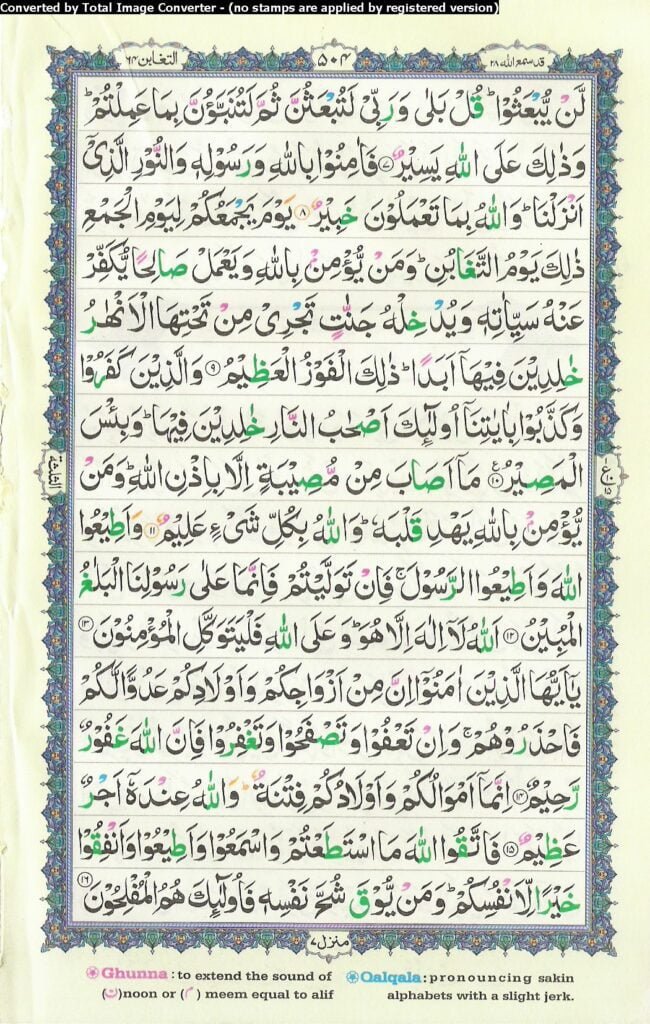 Converted by Total Image Converter - (no stamps are applied by registered version)
قد سمع الله ٢٨ ٥٠٤ التغابن ٦٤
لَّنْ يُّبْعَثُوْا ؕ قُلْ بَلٰى وَرَبِّىْ لَتُبْعَثُنَّ ثُمَّ لَتُنَبَّؤُنَّ بِمَا عَمِلْتُمْ ؕ
وَذٰلِكَ عَلَى اللّٰهِ يَسِيْرٌ ﴿٧﴾ فَاٰمِنُوْا بِاللّٰهِ وَرَسُوْلِهٖ وَالنُّوْرِ الَّذِىْۤ
اَنْزَلْنَا ؕ وَاللّٰهُ بِمَا تَعْمَلُوْنَ خَبِيْرٌ ﴿٨﴾ يَوْمَ يَجْمَعُكُمْ لِيَوْمِ الْجَمْعِ
ذٰلِكَ يَوْمُ التَّغَابُنِ ؕ وَمَنْ يُّؤْمِنْ بِاللّٰهِ وَيَعْمَلْ صَالِحًا يُّكَفِّرْ
عَنْهُ سَيِّاٰتِهٖ وَيُدْخِلْهُ جَنّٰتٍ تَجْرِىْ مِنْ تَحْتِهَا الْاَنْهٰرُ
خٰلِدِيْنَ فِيْهَاۤ اَبَدًا ؕ ذٰلِكَ الْفَوْزُ الْعَظِيْمُ ﴿٩﴾ وَالَّذِيْنَ كَفَرُوْا
وَكَذَّبُوْا بِاٰيٰتِنَاۤ اُولٰٓئِكَ اَصْحٰبُ النَّارِ خٰلِدِيْنَ فِيْهَا ؕ وَبِئْسَ
الْمَصِيْرُ ﴿١٠﴾ ع مَاۤ اَصَابَ مِنْ مُّصِيْبَةٍ اِلَّا بِاِذْنِ اللّٰهِ ؕ وَمَنْ
ع ١٠ ١٥
الثلثة
يُّؤْمِنْ بِاللّٰهِ يَهْدِ قَلْبَهٗ ؕ وَاللّٰهُ بِكُلِّ شَىْءٍ عَلِيْمٌ ﴿١١﴾ وَاَطِيْعُوا
اللّٰهَ وَاَطِيْعُوا الرَّسُوْلَ ۚ فَاِنْ تَوَلَّيْتُمْ فَاِنَّمَا عَلٰى رَسُوْلِنَا الْبَلٰغُ
الْمُبِيْنُ ﴿١٢﴾ اَللّٰهُ لَاۤ اِلٰهَ اِلَّا هُوَ ؕ وَعَلَى اللّٰهِ فَلْيَتَوَكَّلِ الْمُؤْمِنُوْنَ ﴿١٣﴾
يٰۤاَيُّهَا الَّذِيْنَ اٰمَنُوْۤا اِنَّ مِنْ اَزْوَاجِكُمْ وَاَوْلَادِكُمْ عَدُوًّا لَّكُمْ
فَاحْذَرُوْهُمْ ۚ وَاِنْ تَعْفُوْا وَتَصْفَحُوْا وَتَغْفِرُوْا فَاِنَّ اللّٰهَ غَفُوْرٌ
رَّحِيْمٌ ﴿١٤﴾ اِنَّمَاۤ اَمْوَالُكُمْ وَاَوْلَادُكُمْ فِتْنَةٌ ؕ وَاللّٰهُ عِنْدَهٗۤ اَجْرٌ
عَظِيْمٌ ﴿١٥﴾ فَاتَّقُوا اللّٰهَ مَا اسْتَطَعْتُمْ وَاسْمَعُوْا وَاَطِيْعُوْا وَاَنْفِقُوْا
خَيْرًا لِّاَنْفُسِكُمْ ؕ وَمَنْ يُّوْقَ شُحَّ نَفْسِهٖ فَاُولٰٓئِكَ هُمُ الْمُفْلِحُوْنَ ﴿١٦﴾
منزل ٧
Ghunna : to extend the sound of
(ن)noon or (م) meem equal to alif
Qalqala : pronouncing sakin
alphabets with a slight jerk.